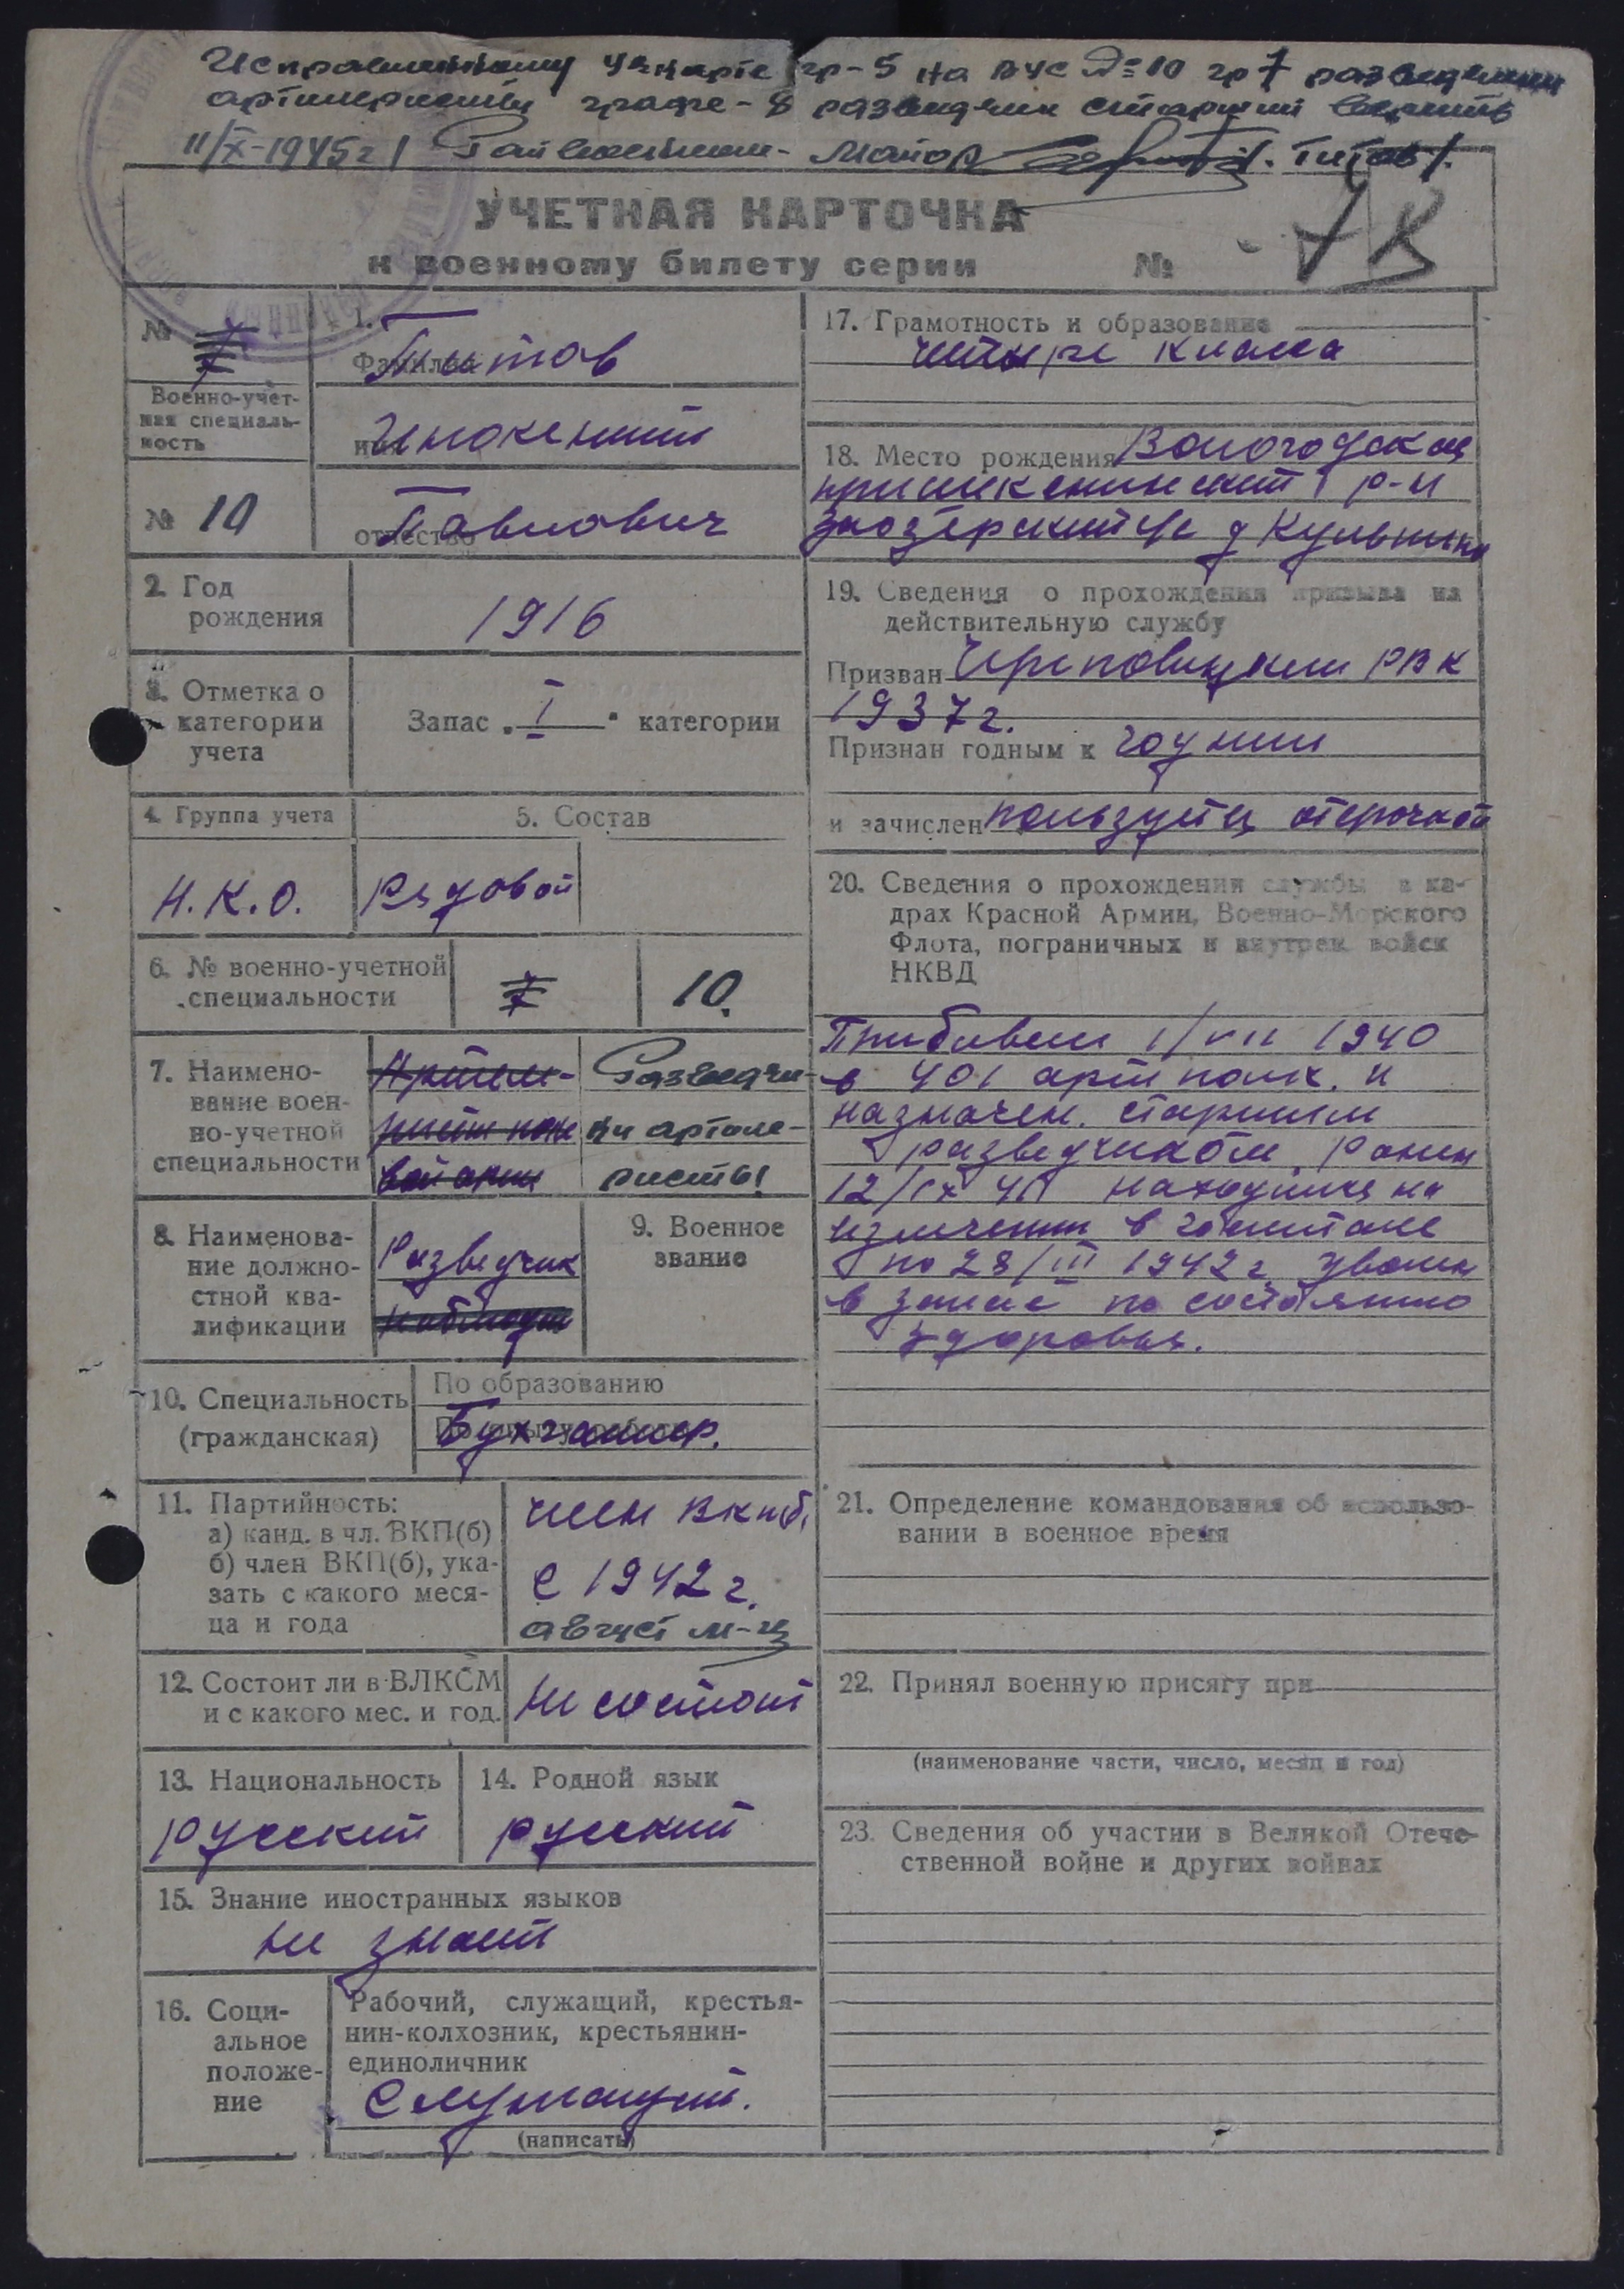 Исправленному в карте гр-5 на ВУС № 10 гр 7 разведчики
артиллеристы графе-8 разведчик старший верить
11/X-1945г Райвоенком- майор /Титов/.
УЧЕТНАЯ КАРТОЧКА
к военному билету серии №
7 К
№ 7
1. Фамилия Титов
Военно-учет-
ная специаль-
ность
имя Инокентий
№ 10
отчество Павлович
2. Год
рождения
1916
3. Отметка о
категории
учета
Запас „I“ категории
4. Группа учета
Н.К.О.
5. Состав
Рядовой
6. № военно-учетной
специальности
7
10.
7. Наимено-
вание воен-
но-учетной
специальности
Артиле-
рист
Разведчи-
ки артиле-
ристы
8. Наименова-
ние должно-
стной ква-
лификации
Разведчик
наблюдат
9. Военное
звание
10. Специальность
(гражданская)
По образованию
Бухгалтер.
11. Партийность:
а) канд. в чл. ВКП(б)
б) член ВКП(б), ука-
зать с какого меся-
ца и года
член ВКП(б)
с 1942 г.
август м-ц
12. Состоит ли в ВЛКСМ
и с какого мес. и год.
Не состоит
13. Национальность
русский
14. Родной язык
русский
15. Знание иностранных языков
не знает
16. Соци-
альное
положе-
ние
Рабочий, служащий, крестья-
нин-колхозник, крестьянин-
единоличник
Служащий.
(написать)
17. Грамотность и образование
четыре класса
18. Место рождения Вологодская
р-н
д
19. Сведения о прохождении призыва на
действительную службу
Призван Череповецким РВК
1937 г.
Признан годным к годным
и зачислен пользуется отсрочкой
20. Сведения о прохождении службы в ка-
драх Красной Армии, Военно-Морского
Флота, пограничных и внутрен. войск
НКВД
Прибывши 1/VII 1940
в 401 арт полк. и
назначен. старшим
разведчиком. Ранен
12/IX 41 находился на
излечении в госпитале
по 28/III 1942 г. уволен
в запас по состоянию
здоровья.
21. Определение командования об использо-
вании в военное время
22. Принял военную присягу при
(наименование части, число, месяц и год)
23. Сведения об участии в Великой Отече-
ственной войне и других войнах